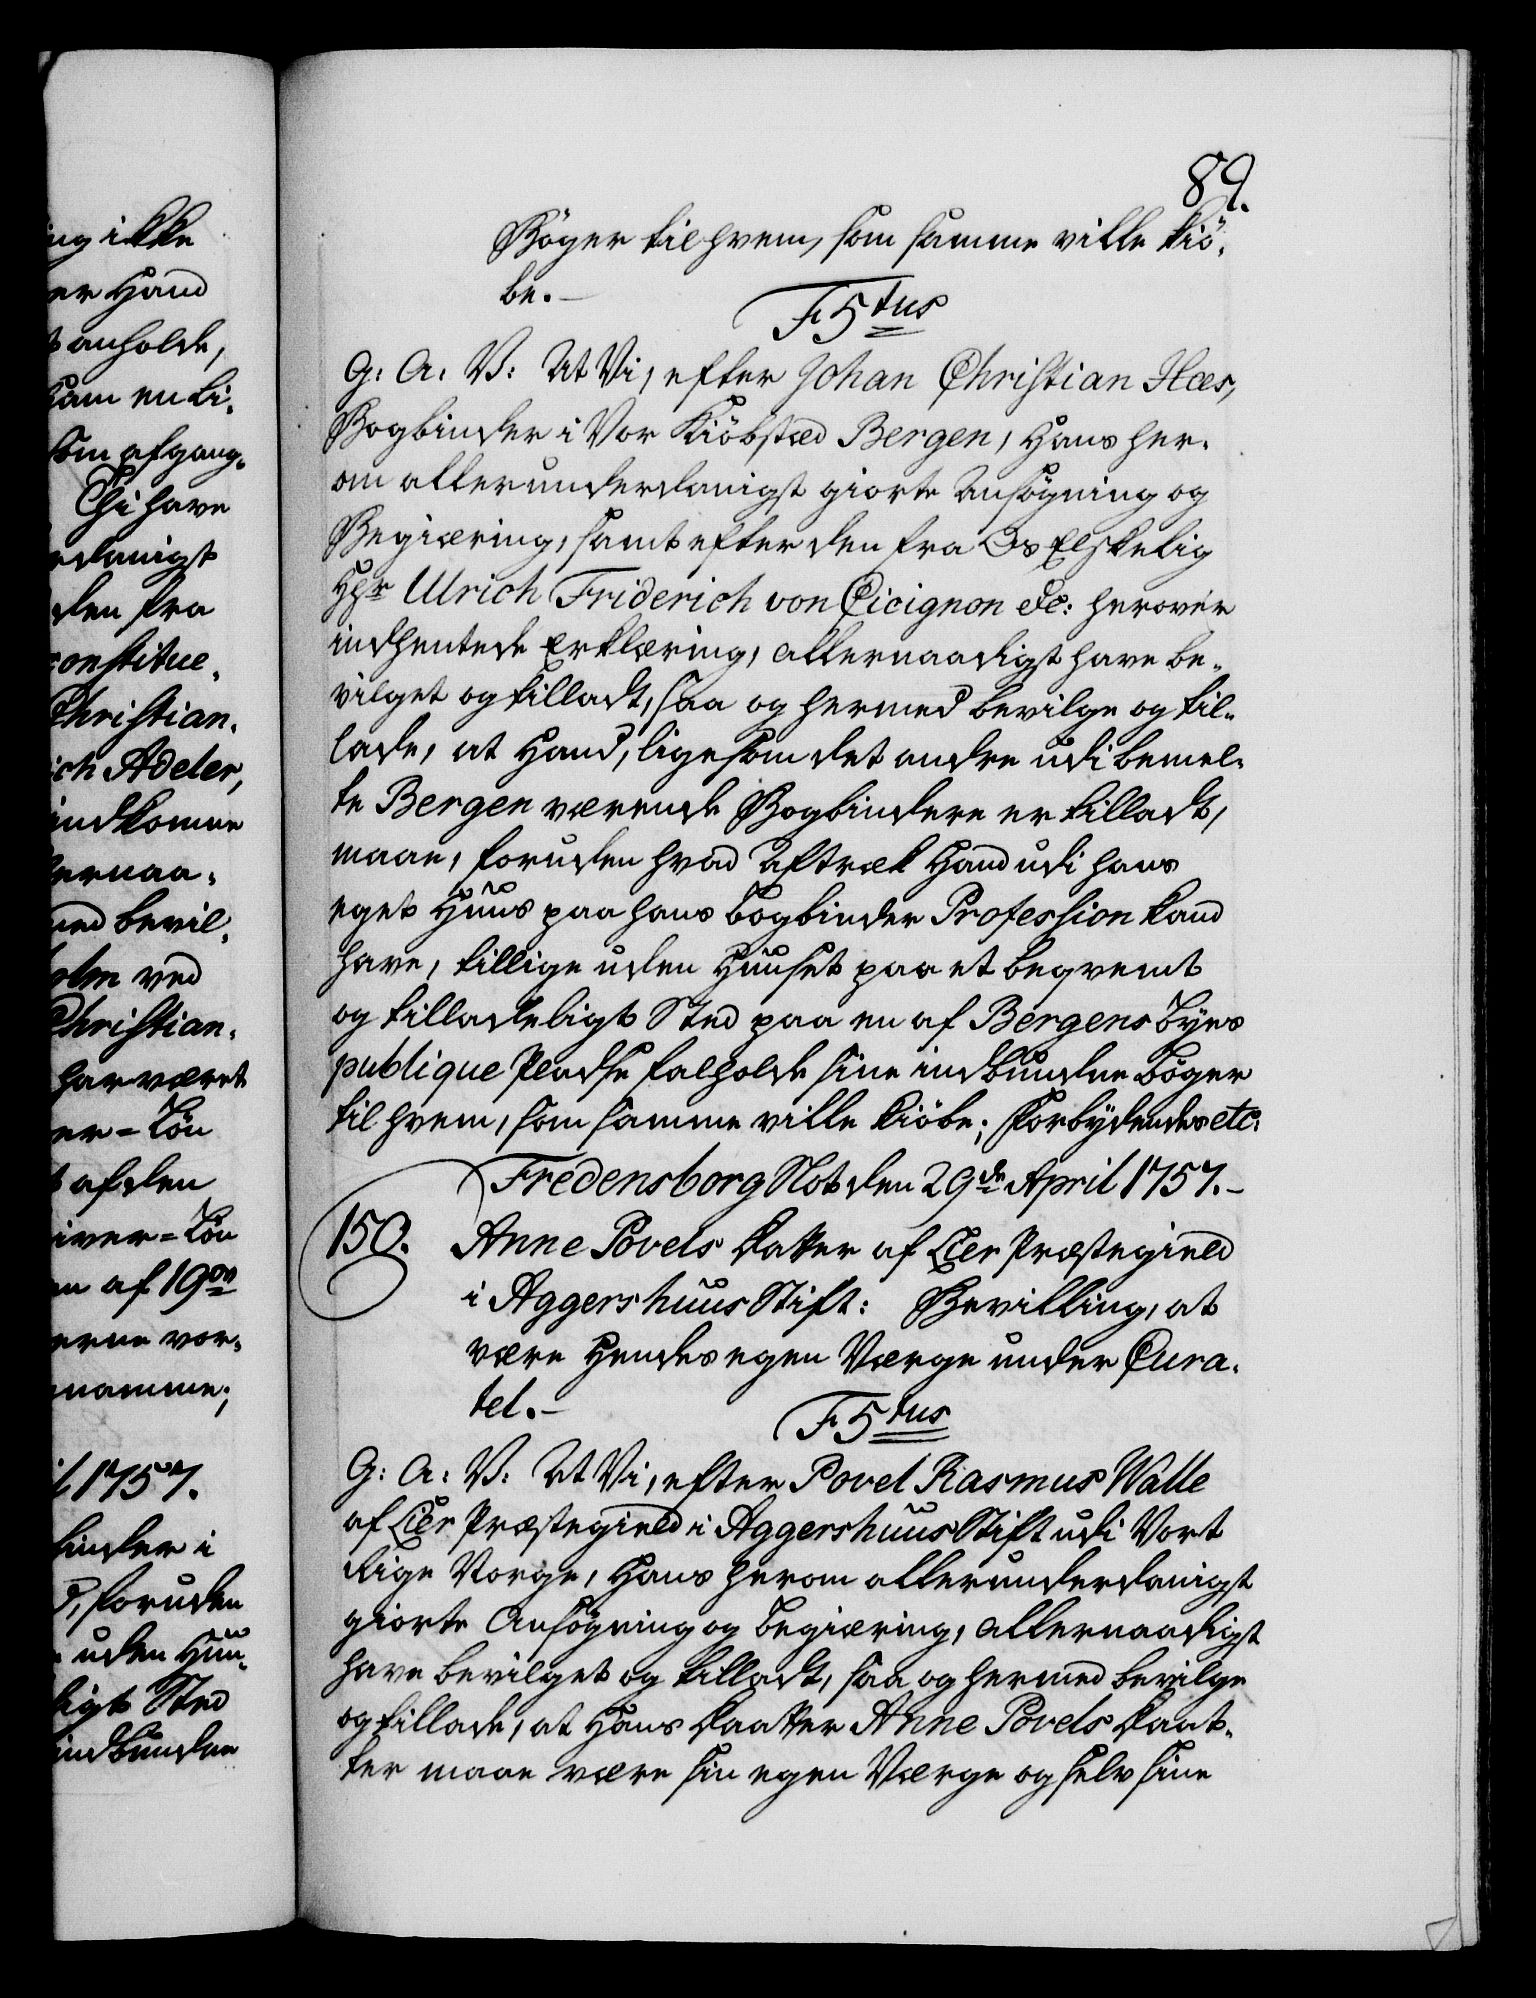 89.
Bøger til hvem, som samme ville kiö-
be.-
F5tus
G: A: V: At Vi, efter Johan Christian Haes,
Bogbinder i Vor Kiöbstæd Bergen, Hans her-
om allerunderdanigst giorte Ansøgning og
Begiæring, samt efter den fra Os Elskelig
Hr Ulrich Friderich von Cicignon etc: herover
indhentede Erklæring, allernaadigst have be-
vilget og tilladt, saa og hermed bevilge og til-
lade, at Hand, ligesom det andre udi bemel-
te Bergen værende Bogbindere er tilladt,
maae, foruden hvad Aftræk Hand udi hans
eget Huus paa hans bogbinder Profession kand
have, tillige uden Huuset paa et beqvemt
og tilladeligt Sted paa en af Bergens Byes
publique Pladse falholde sine indbundne bøger
til hvem, som samme ville kiöbe; Forbydendes etc:
Fredensborg Slot den 29de April 1757.-
150. Anne Povels Datter af Lier Præstegield
i Aggershuus Stift: Bevilling, at
være Hendes egen Værge under Cura-
tel.-
F5tus
G: A: V: At Vi, efter Povel Rasmus Walle
af Lier Præstegield i Aggershuus Stift udi Vort
Rige Norge, Hans herom allerunderdanigst
giorte Ansøgning og begiæring, allernaadigst
have bevilget og tilladt, saa og hermed bevilge
og tillade, at Hans Daatter Anne Povels Daat-
ter maae være sin egen Værge og selv sine
ng ikke
er Hand
anholde,
en Li-
som afgang-
Thi have
rdanigst
den fra
constitue-
Christian-
ich Adeler,
indkomne
lernaa-
med bevil-
olm ved
Christian-
har været
er-Løn
t af den
iver-Løn
en af 19de
erne vor-
namme;
il 1757.
binder i
foruden
uden Huu-
ligt Sted
indbundne